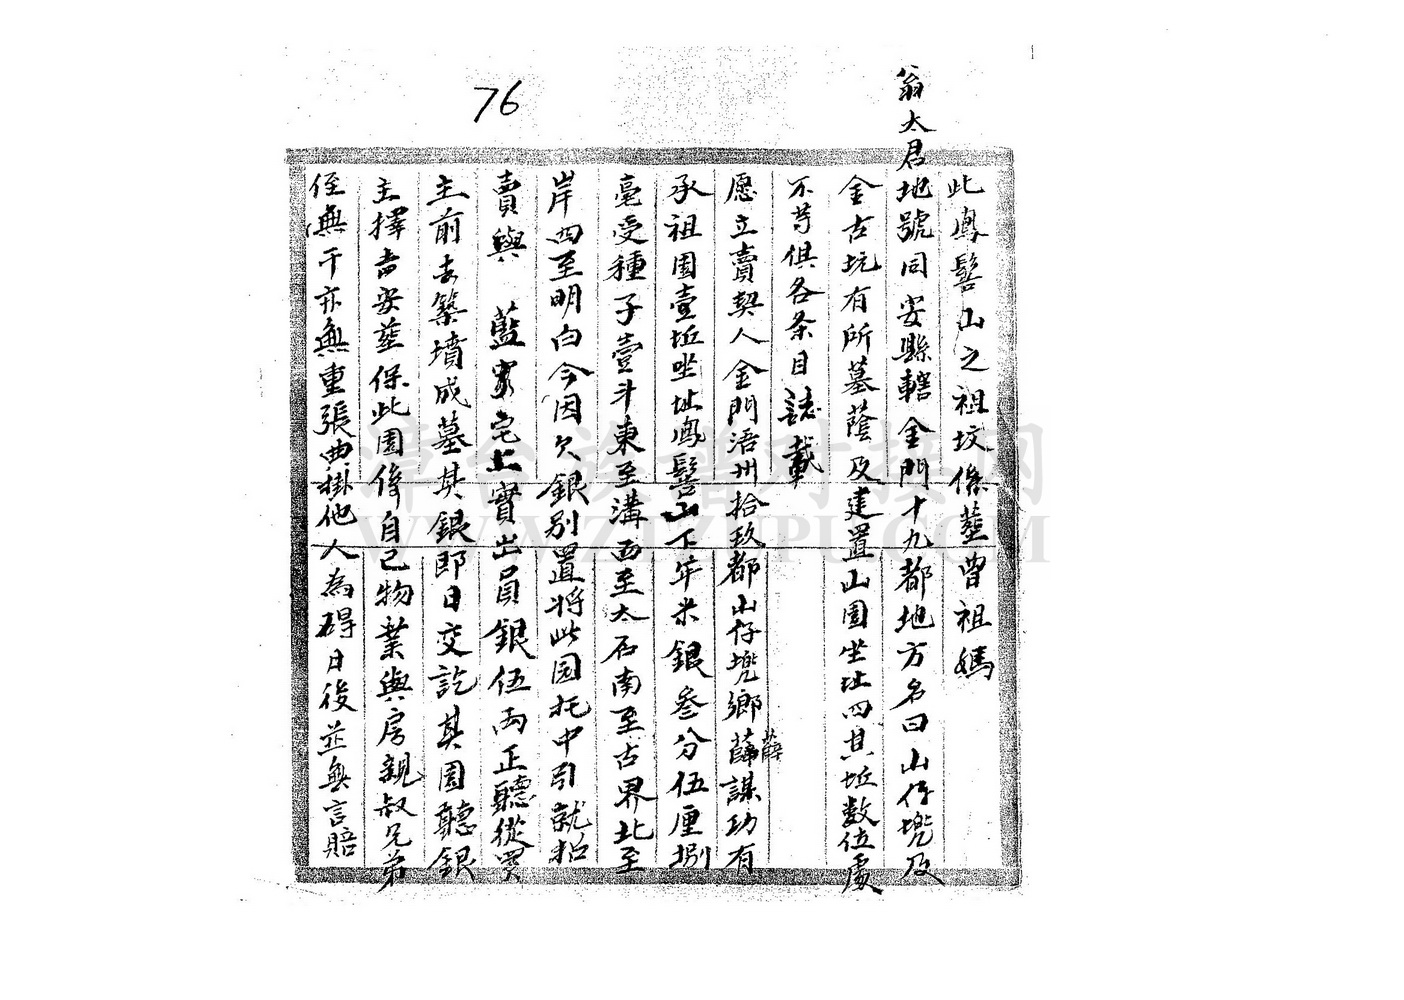 76
此鳳髻山之祖坟係塟曾祖媽
翁太君地號同安縣轄金門十九都地方名曰山仔兠及
金古坑有所墓蔭及建置山園坐址四其坵數位處
不苻俱各条目誌載
愿立賣契人金門浯州拾玖都山仔兠鄉薛謀功有
薛
承祖園壹坵坐址鳳髻山下年米銀叁分伍厘捌
毫受種子壹斗東至溝西至大石南至古界北至
岸四至明白今因欠銀別置将此园托中引就招
賣與 藍家宅上實出員銀伍両正聽從買
主前去築墳成墓其銀即日交訖其園聽銀
主擇吉安塟保此園係自己物業與房親叔兄弟
侄無干亦無重張典掛他人為碍日後並無言賠
漳台族谱对接网
WWW.ZTZUPU.COM